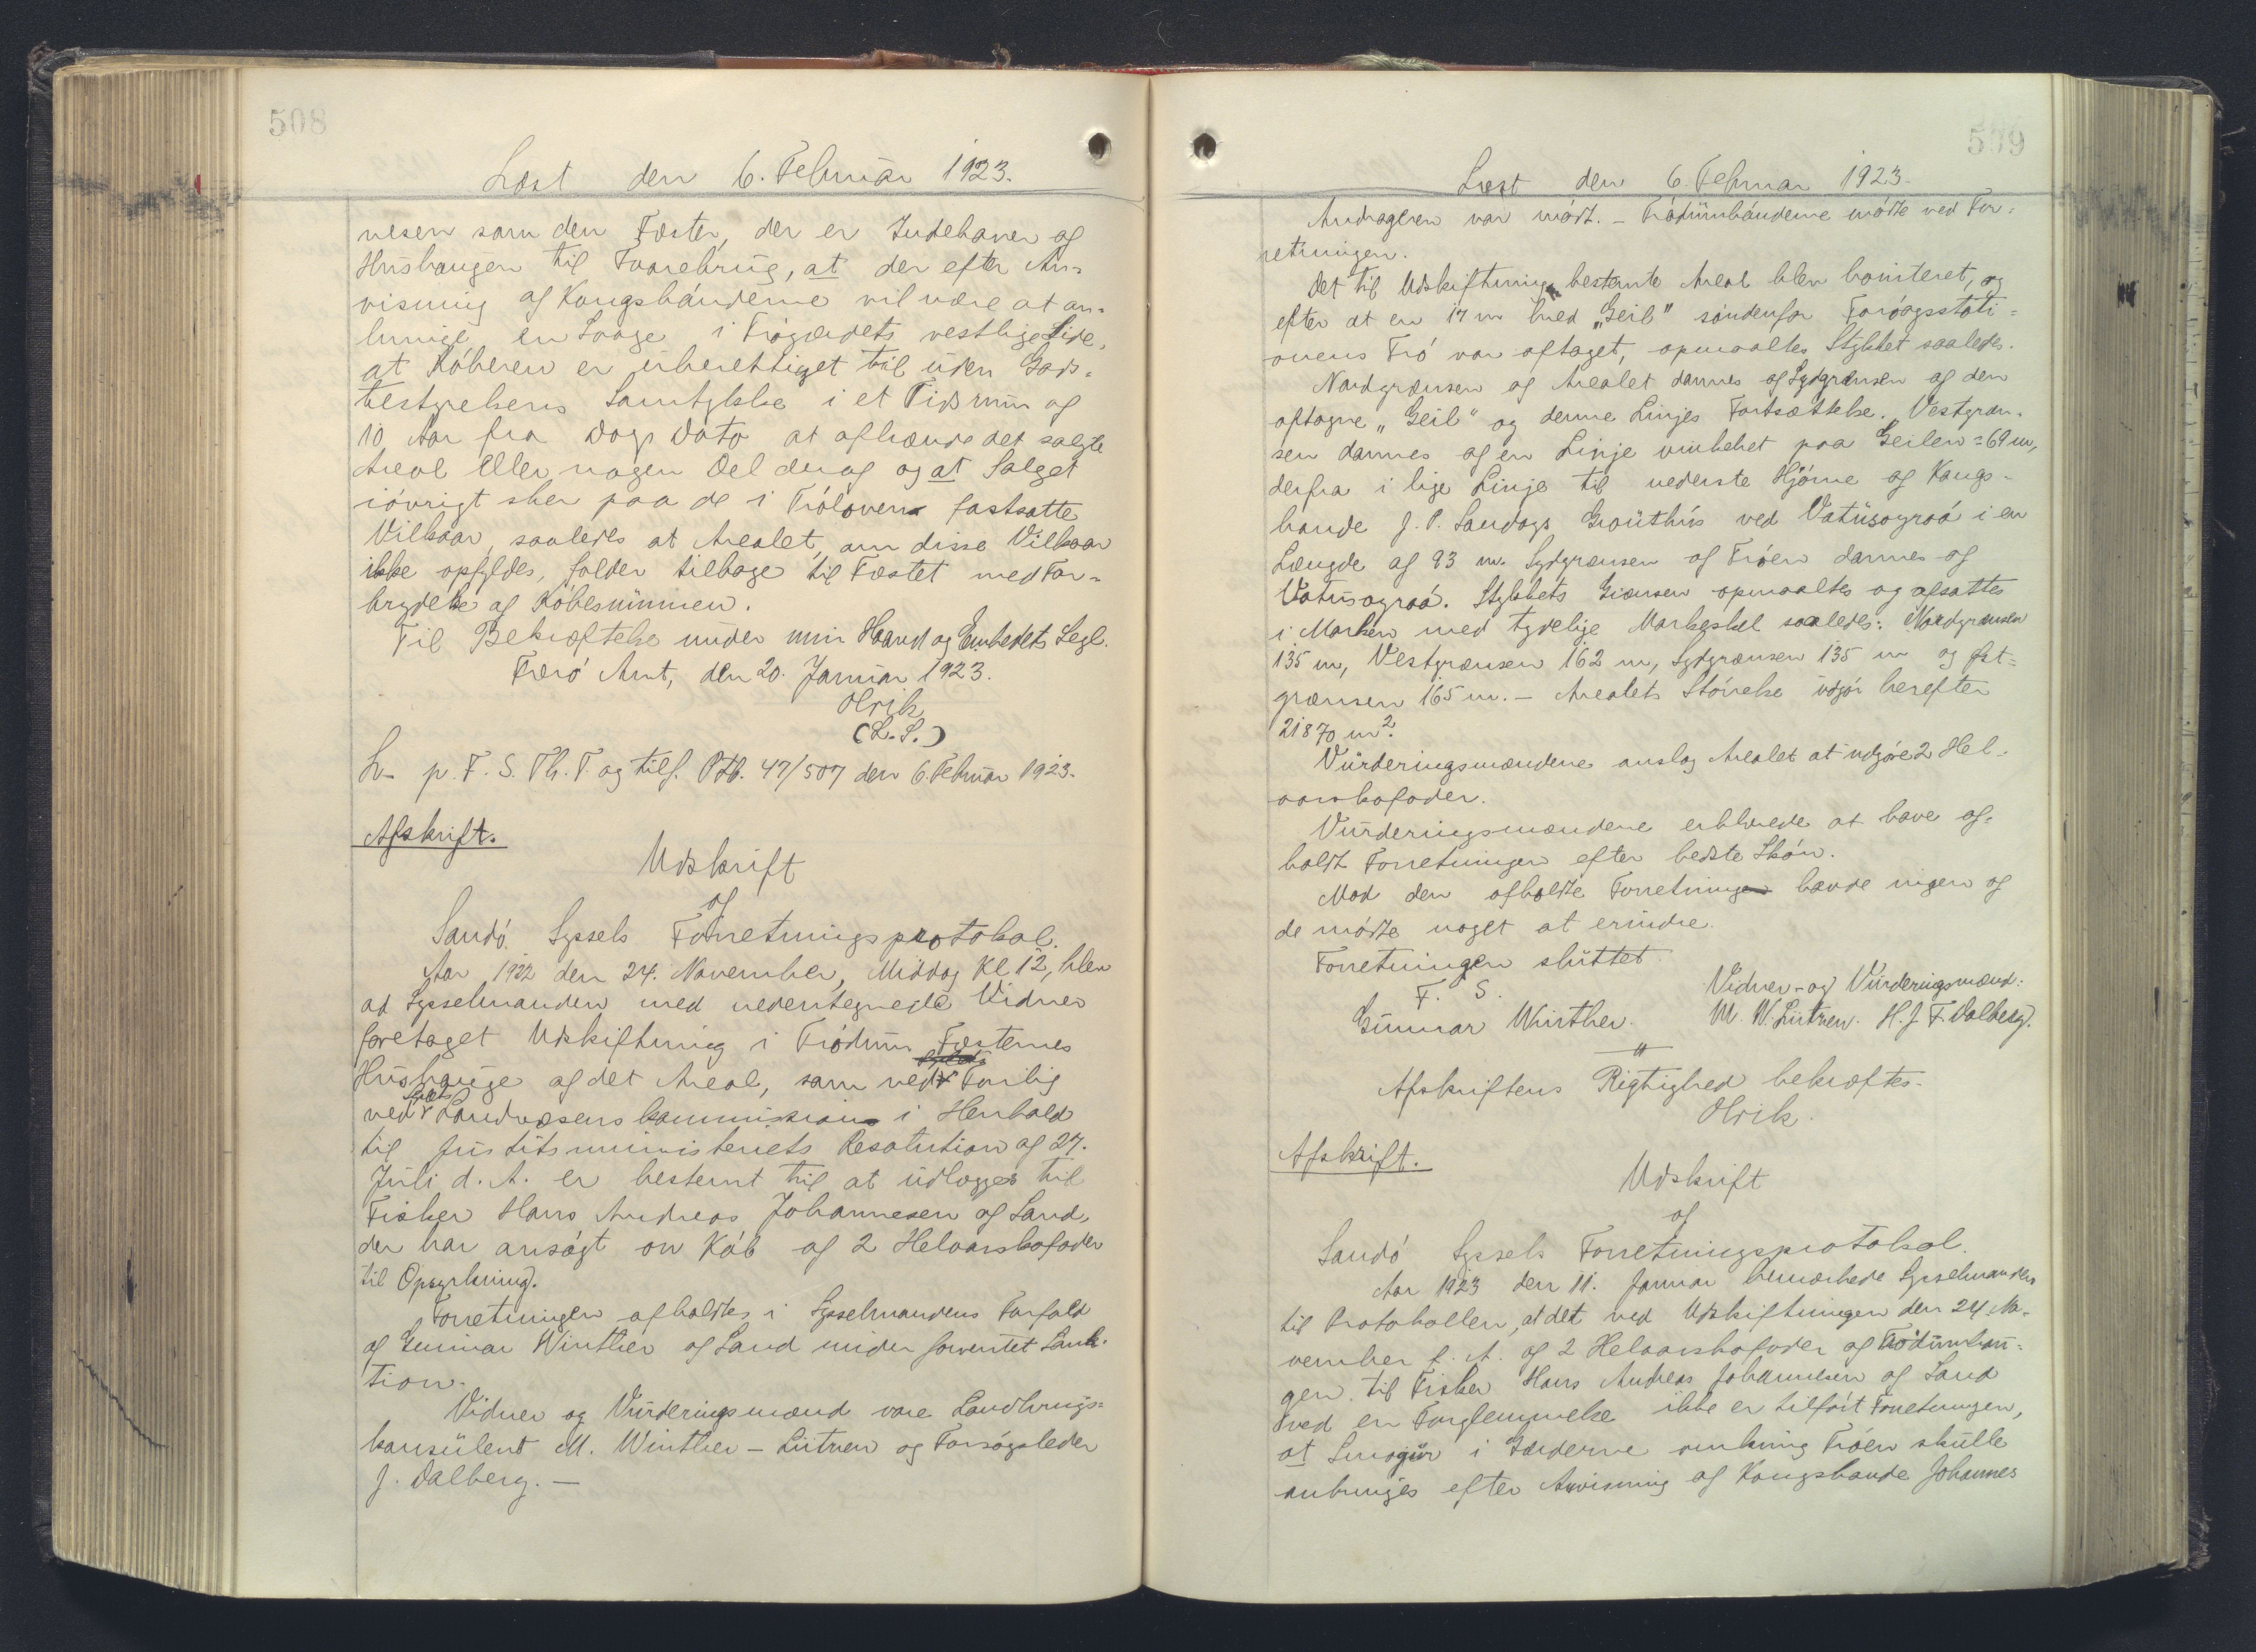 508
Læst den 6. Februar 1923.
vesen som den Fæster, der er Indehaver af
Húshaugen til Tvarebrug, at der efter An-
visning af Kongsbönderne vil være at an-
bringe en Laage i Trøgærdets vestlige Side,
at Køberen er uberettiget til uden Jords-
bestyrelsens Samtykke i et Tidsrum af
10 Aar fra Dags Dato at afhænde det solgte
Areal eller nogen Del deraf og at Salget
iøvrigt sker paa de i Trøloven fastsatte
Vilkaar, saaledes at Arealet, om disse Vilkaar
ikke opfyldes, falder tilbage til Fæstet med For-
brydelse af Købesummen.
Til Bekræftelse under min Haand og Embedets Segl.
Færø Amt, den 20. Januar 1923.
Olrik
(L.S.)
L. p. F. S. Th. T og tilf. Ptb. 47/507 den 6. Februar 1923.
Afskrift.
Udskrift
af
Sandø Syssels Forretningsprotokol.
Aar 1922 den 24. November, Middag Kl 12, blev
af Sysselmanden med nedentegnede Vidner
foretaget Udskiftning i Trødum Fæsternes
Húshauge af det Areal, som ved Forlig
ved Landvæsenskommission i Henhold
til Justitsministeriets Resolution af 27.
Juli d. A. er bestemt til at udlægges til
Fisker Hans Andreas Johannesen af Sand,
der har ansøgt om Køb af 2 Helaarskofoder
til Opdyrkning.
Forretningen afholdtes i Sysselmandens Forfald
af Gunnar Winther af Sand under forventet Sank-
tion.
Vidner og Vurderingsmænd vare Landbrugs-
konsulent M. Winther-Lützen og Forsøgsleder
J. Dalberg. -
509
Læst den 6. Februar 1923.
Andrageren var mødt. - Trødumbønderne mødte ved For-
retningen.
Det til Udskiftning bestemte Areal blev boniteret, og
efter at en 17 m bred "Geil" søndenfor Forsøgsstati-
onens Trø var aftaget, opmaaltes Stykket saaledes.
Nordgrænsen af Arealet dannes af Sydgrænsen af den
aftagne "Geil" og denne Linjes Fortsættelse. Vestgræn-
sen dannes af en Linje vinkelret paa Geilen = 69 m,
derfra i lige Linje til nederste Hjørne af Kongs-
bonde J. P. Sandags Groúthús ved Vatúsograá i en
Længde af 93 m. Sydgrænsen af Trøen dannes af
Vatúsograá. Stykkets Grænser opmaaltes og afsattes
i Marken med tydelige Markeskel saaledes: Nordgrænsen
135 m, Vestgrænsen 162 m, Sydgrænsen 135 m og Øst-
grænsen 165 m. - Arealets Størrelse udgør herefter
21870 m².
Vurderingsmændene anslog Arealet at udgøre 2 Hel-
aarskofoder.
Vurderingsmændene erklærede at have af-
holdt Forretningen efter bedste Skøn.
Mod den afholdte Forretning havde ingen af
de mødte noget at erindre.
Forretningen sluttet.
F. S.
Vidner- og Vurderingsmænd:
Gunnar Winther. M. W. Lützen. H. J. F. Dalberg.
"
Afskriftens Rigtighed bekræftes.
Olrik.
Afskrift.
Udskrift
af
Sandø Syssels Forretningsprotokol.
Aar 1923 den 11. Januar bemærkede Sysselmanden
til Protokollen, at det ved Udskiftningen den 24 No-
vember f. A. af 2 Helaarskofoder af Trødumhau-
gen til Fisker Hans Andreas Johannesen af Sand
ved en Forglemmelse ikke er tilført Forretningen,
at Smogur i Gærderne omkring Trøen skulle
anbringes efter Anvisning af Kongsbonde Johannes